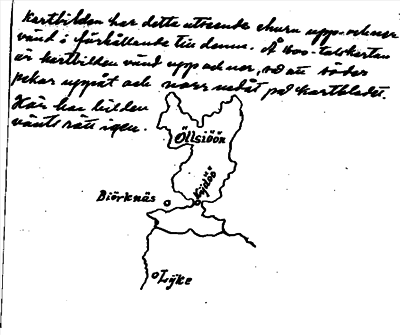 Kartbilden har detta utseende ehuru upp och ner
vänd i förhållande till denna. Å 1600-talskartan
är kartbilden vänd upp och ner, så att söder
pekar uppåt och norr nedåt på kartbladet.
Här har bilden
vänts rätt igen.
Öllsiöön
Biörknäs
Lÿke